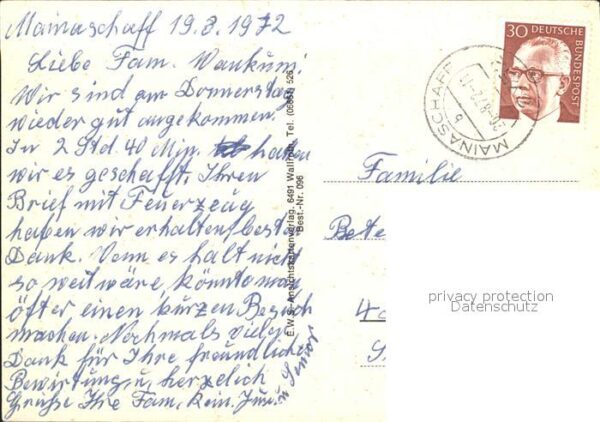 Mainaschaff 19.8.1972
Liebe Fam. Wankum!
Wir sind am Donnerstag
wieder gut angekommen.
In 2 Std 40 Min. haben
wir es geschafft. Ihren
Brief mit Feuerzeug
haben wir erhalten besten
Dank. Wenn es halt nicht
so weit wäre, könnte man
öfter einen kurzen Besuch
machen. Nochmals vielen
Dank für Ihre freundliche
Bewirtung u. herzlich
Grüße Ihre Fam.
Senior
E.W.S.-Ansichtskartenverlag, 6491 Wallroth, Tel. (06661) 526
Best.-Nr. 096
30 DEUTSCHE
BUNDESPOST
MAINASCHAFF
Familie
privacy protection
Datenschutz